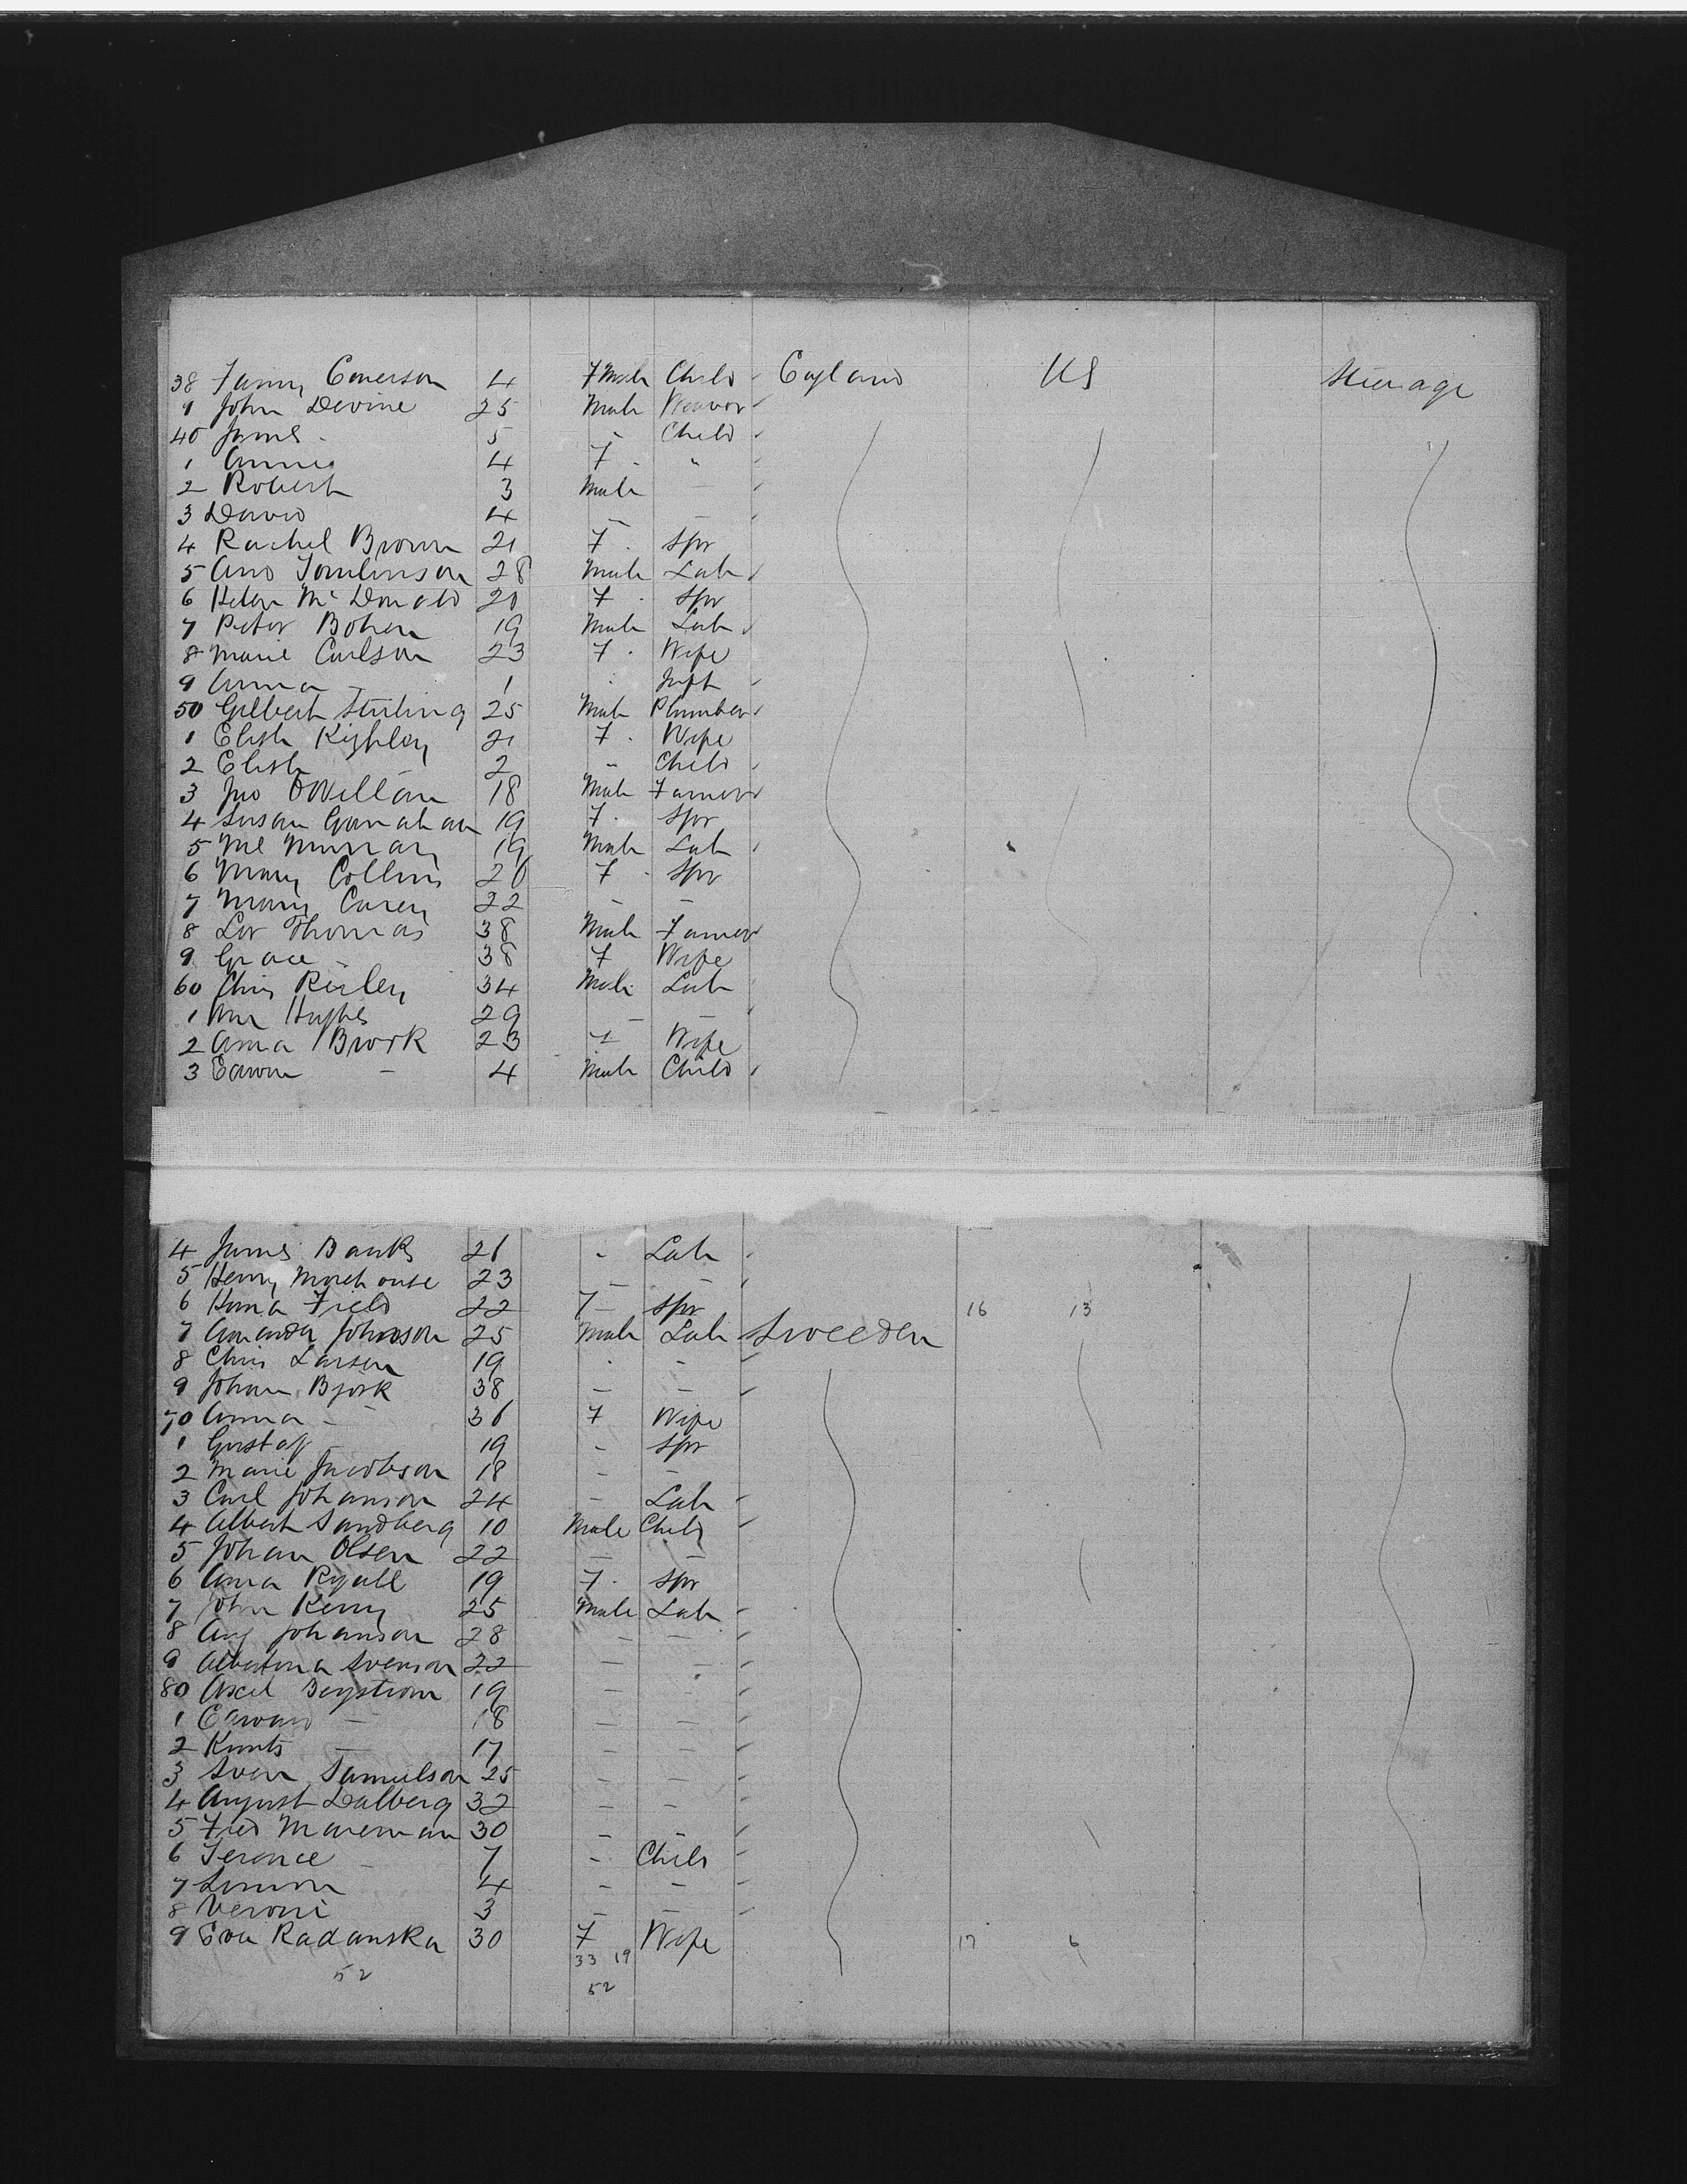 38 Fanny Emerson 4 F Male Child England US Steerage
9 John Devine 25 Male Weaver
40 James - 5 " Child
1 Annie 4 F " "
2 Robert 3 Male —
3 David 4 — —
4 Rachel Brown 21 F " Spr
5 Tomlinson 28 Male Lab
6 Helen McDonald 20 F " Spr
7 Peter Bohen 19 Male Lab
8 Marie Carlson 23 F " Wife
9 Anna - 1 " Inft
50 Gilbert Stirling 25 Male Plumber
1 Elisth 21 F " Wife
2 Elisth 2 " Child
3 Jno 18 Male Farmer
4 Susan 19 F " Spr
5 Murray 19 Male Lab
6 Mary Collins 20 F " Spr
7 Mary Carey 22 — —
8 Thomas 38 Male Farmer
9 Grace - 38 F Wife
60 Chris 34 Male Lab
1 Wm Hughes 29 — —
2 Anna Brook 23 F Wife
3 - 4 Male Child
4 James Banks 26 " Lab
5 Henry Morehouse 23 — —
6 Field 22 F — Spr 16 13
7 Amanda Johnson 25 Male Lab Sweeden
8 Chris Larsen 19 " -
9 Johan Bjork 38 — —
70 Anna - 36 F Wife
1 Gustaf - 19 - Spr
2 Marie Jacobson 18 - —
3 Carl Johanson 24 — Lab
4 Albert Sandberg 10 Male Child
5 Johan Olsen 22 — —
6 Anna 19 F " Spr
7 John Kerry 25 Male Lab
8 Aug Johanson 28 — —
9 Albertina Svenson 22 — —
80 Axel Bergstrom 19 — —
1 Edward — 18 — —
2 — 17 — —
3 Sven Samuelson 25 — —
4 August Dalberg 32 — —
5 Fred 30 — —
6 - 7 - Child
7 4 - -
8 3 — —
9 Eva Radanska 30 F Wife 17 6
33 19
52
52